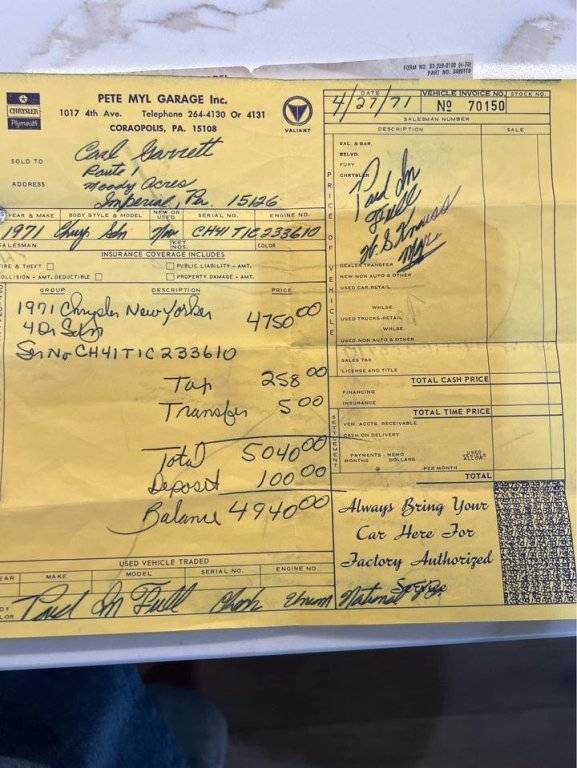 FORM NO. 33-229-0100 (4-70)
PART NO. 2499119
CHRYSLER
Plymouth
PETE MYL GARAGE Inc.
1017 4th Ave. Telephone 264-4130 Or 4131
CORAOPOLIS, PA. 15108
VALIANT
DATE
4/27/71
VEHICLE INVOICE NO.
STOCK NO.
No 70150
SALESMAN NUMBER
DESCRIPTION
SALE
SOLD TO
Carl Garrett
ADDRESS
Route 1
Moody Acres
Imperial, Pa. 15126
YEAR & MAKE BODY STYLE & MODEL NEW OR USED SERIAL NO. ENGINE NO.
1971 Chry. Sdn New CH41T1C233610
SALESMAN
KEY NOS.
COLOR
INSURANCE COVERAGE INCLUDES
FIRE & THEFT PUBLIC LIABILITY - AMT.
COLLISION - AMT. DEDUCTIBLE PROPERTY DAMAGE - AMT.
GROUP DESCRIPTION PRICE
1971 Chrysler New Yorker
4750 00
4 Dr Sedan
Ser No CH41T1C233610
Tax 258 00
Transfer 5 00
Total 5040 00
Deposit 100 00
Balance 4940 00
USED VEHICLE TRADED
YEAR MAKE MODEL SERIAL NO. ENGINE NO.
Paid In Full Check Union National
PRICE OF VEHICLE
VAL. & BAR.
BELVD.
FURY
CHRYSLER
Paid In
Full
DEALER TRANSFER
NEW-NON AUTO & OTHER
USED CAR-RETAIL
WHLSE.
USED TRUCKS-RETAIL
WHLSE.
USED-NON AUTO & OTHER
SALES TAX
LICENSE AND TITLE
TOTAL CASH PRICE
FINANCING
INSURANCE
TOTAL TIME PRICE
SETTLEMENT
VEH. ACCTS. RECEIVABLE
CASH ON DELIVERY
PAYMENTS - MEMO
MONTHS DOLLARS
@ PER MONTH
USED ALLOW'
TOTAL
Always Bring Your
Car Here For
Factory Authorized
Service